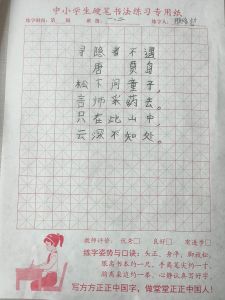 中小学生硬笔书法练习专用纸
练字时间：第 周 班级：一、二 姓名：
寻隐者不遇
唐 贾岛
松下问童子，
言师采药去。
只在此山中
云深不知处。
教师评价：优秀□ 良好□ 有进步□
练字姿势与口诀：头正、身平、脚放松，
眼离书本约一尺，手离笔尖约一寸，
胸离桌边约一拳，静心认真写好字，
写方方正正中国字，做堂堂正正中国人！